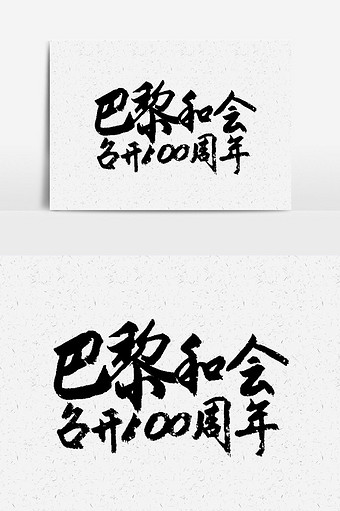 巴黎和会
召开100周年
巴黎和会
召开100周年